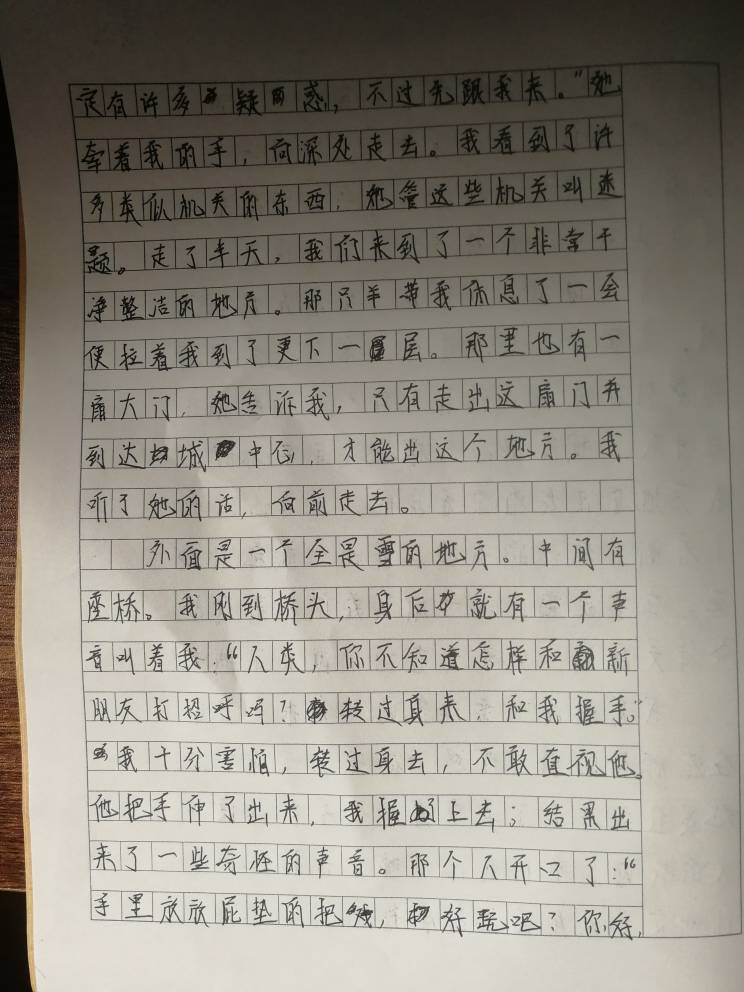 定有许多疑惑，不过先跟我来。”她
牵着我的手，向深处走去。我看到了许
多类似机关的东西，她管这些机关叫迷
题。走了半天，我们来到了一个非常干
净整洁的地方。那只羊带我休息了一会
便拉着我到了更下一层。那里也有一
扇大门，她告诉我，只有走出这扇门并
到达城中心，才能出这个地方。我
听了她的话，向前走去。
外面是一个全是雪的地方。中间有
座桥。我刚到桥头，身后就有一个声
音叫着我：“人类，你不知道怎样和新
朋友打招呼吗？转过身来，和我握手。”
我十分害怕，转过身去，不敢直视他。
他把手伸了出来，我握上去；结果出
来了一些奇怪的声音。那个人开口了：“
手里放放屁垫的把戏，好玩吧？你好，